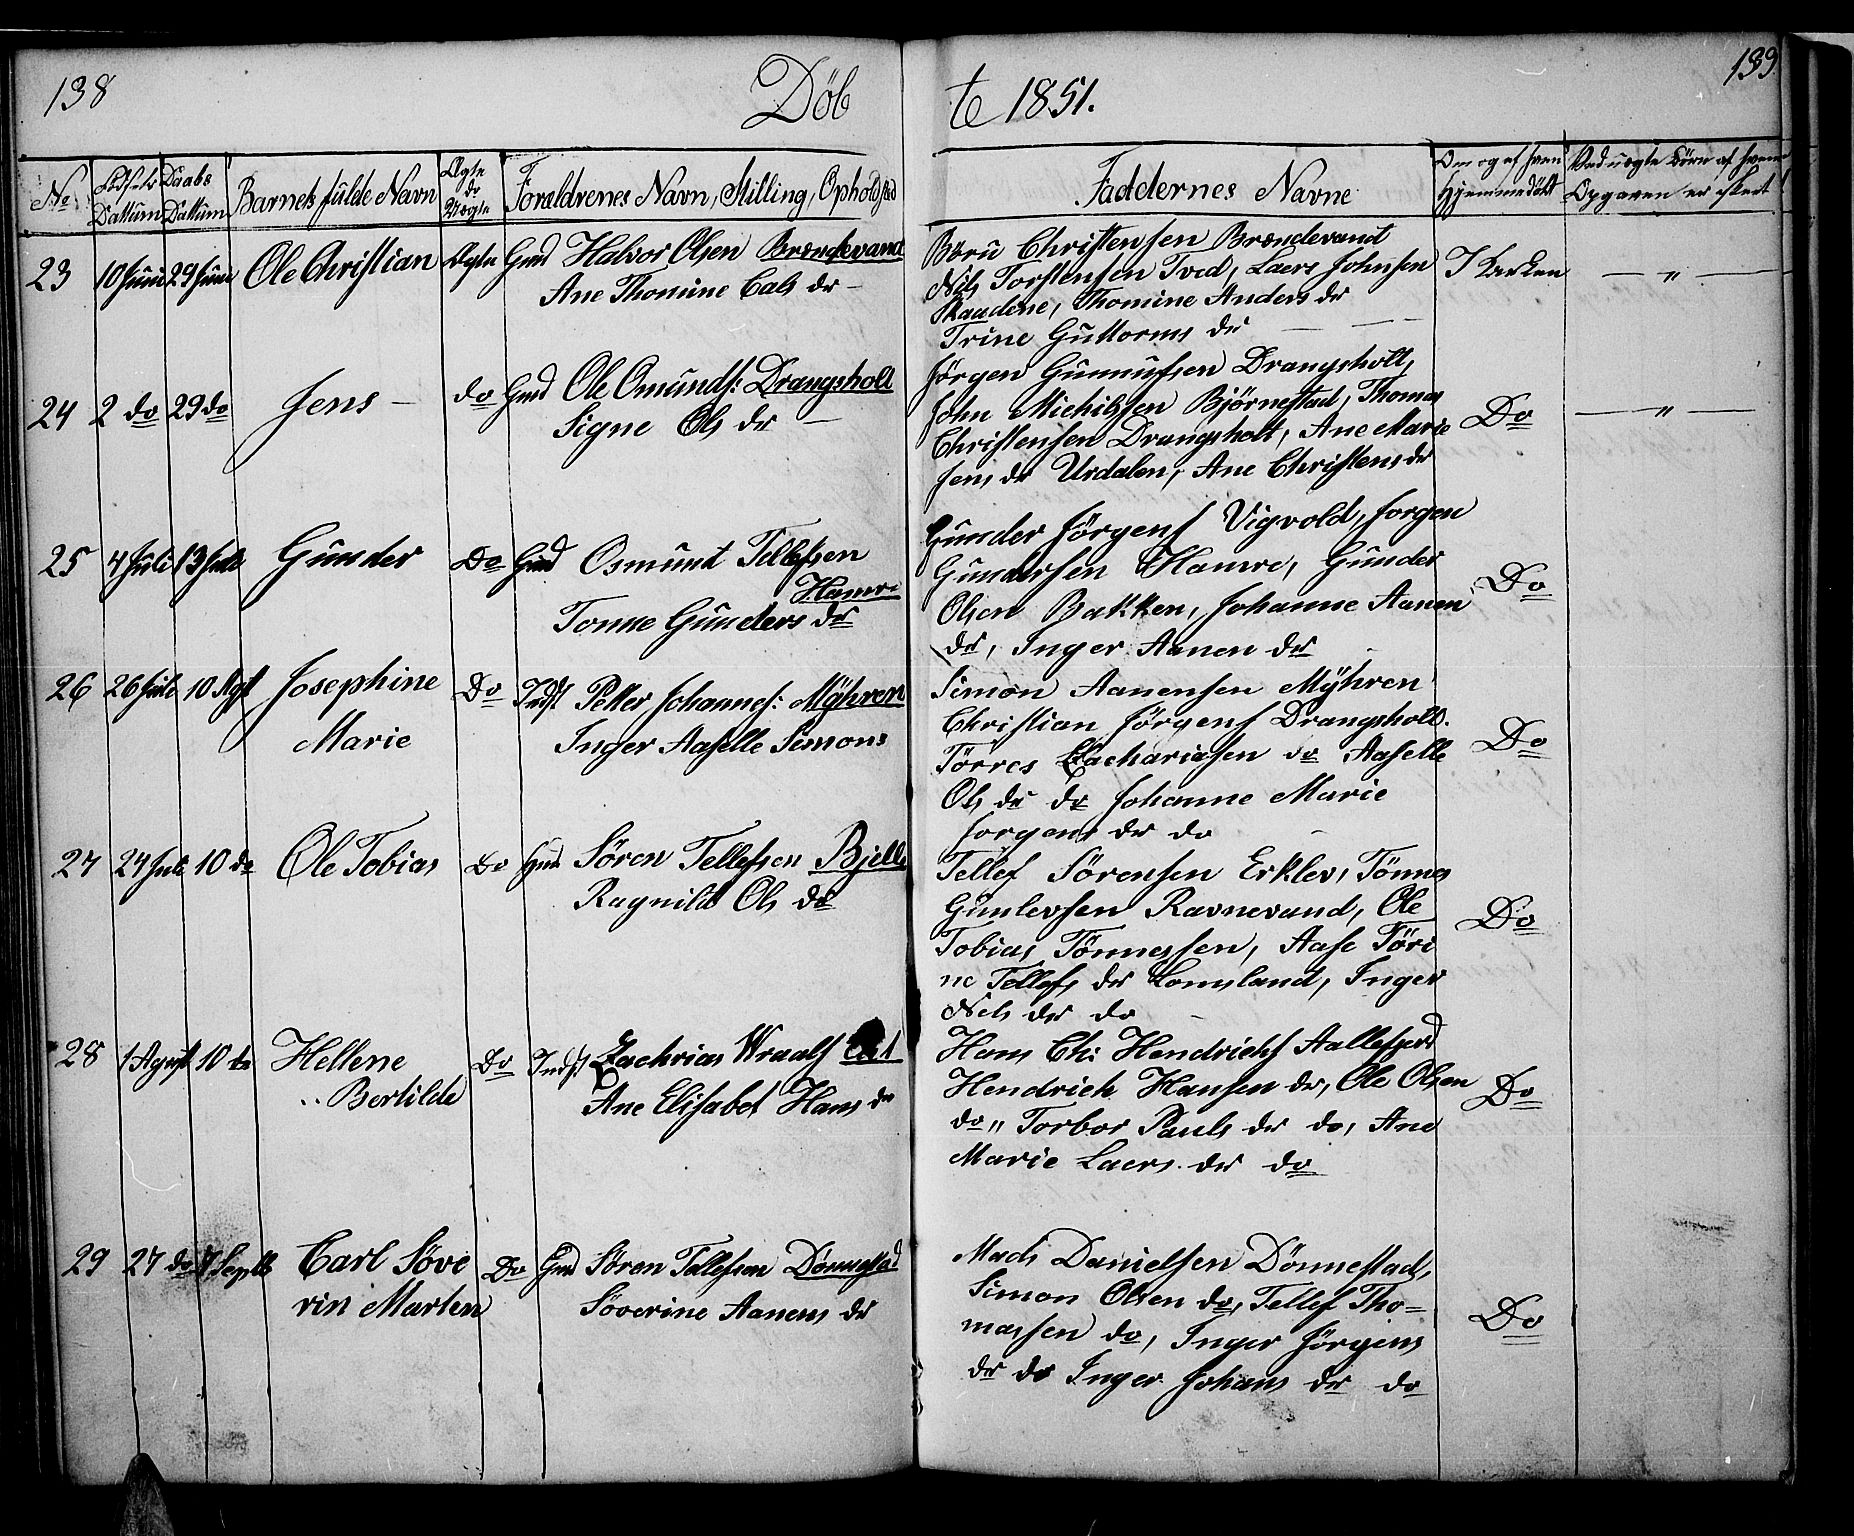 138
Döb
te 1851.
139
No
Födsels Dattum
Daabs Dattum
Barnets fulde Navn
Ægte do Uægte
Foreldrenes Navn, Stilling, Opholdsted
Faddernes Navne
Om og af hvem Hjemmedöbt
Ved uægte Börn af hvem Opgaven er skeet
23 10 Juni 29 Juni Ole Christian Ægte Gmd Halvor Olsen Brændevand
Ane Thomine Cals dr —
Böru Christensen Brændevand
Nils Torstensen Tved, Laers Johnsen
Skaadene, Thomine Anders dr
Trine Guttorms dr
I Kirken — " —
24 2 do 29 do Jens — do Gmd Ole Omunds: Drangsholt
Signe Ols dr —
Jörgen Gunnufsen Drangsholt,
John Michilsen Björnestad, Thomas
Christensen Drangsholt, Ane Marie
Jens dr Urdalen, Ane Christens dr
Do — " —
25 4 Juli 13 Juli Gunder Do Gmd Osmund Tellefsen
Hamre
Tonne Gunders dr
Gunder Jörgens Vigvold, Jorgen
Gundersen Hamre, Gunder
Olsen Bakken, Johanne Aanen
dr, Inger Aanen dr
Do
26 26 Juli 10 Agst Josephine Do Indst Petter Johannes: Mÿhren
Marie Inger Aaselle Simons
Simon Aanensen Mÿhren
Christian Jörgens Drangsholt.
Törres Zachariasen do Aaselle
Ols dr do Johanne Marie
Jorgens dr do
Do
27 24 Juli 10 do Ole Tobias Do Gmd Sören Tellefsen Bjelle
Ragnild Ols dr
Tellef Sörensen Erklev, Tönnes
Gunlevsen Ravnevand, Ole
Tobias Tönnessen, Aase Töri
ne Tellefs dr Lomsland, Inger
Nils dr do
Do
28 1 Agust 10 do Hellene Do Indst Zachrias Wraals
Bertilde Ane Elisabet Hans dr
Hans Chr: Hendrichs Aallefjær
Hendrich Hansen do, Ole Olsen
do, Torbor Pauls dr do, Ane
Marie Laers dr do
Do
29 27 do 7 Septb Carl Söve Do Gmd Sören Tellefsen Dönnestad
rin Marten Söverine Aanens dr
Mads Danielsen Dönnestad,
Simon Olsen do, Tellef Tho=
massen do, Inger Jörgens
dr do Inger Johans dr do
Do